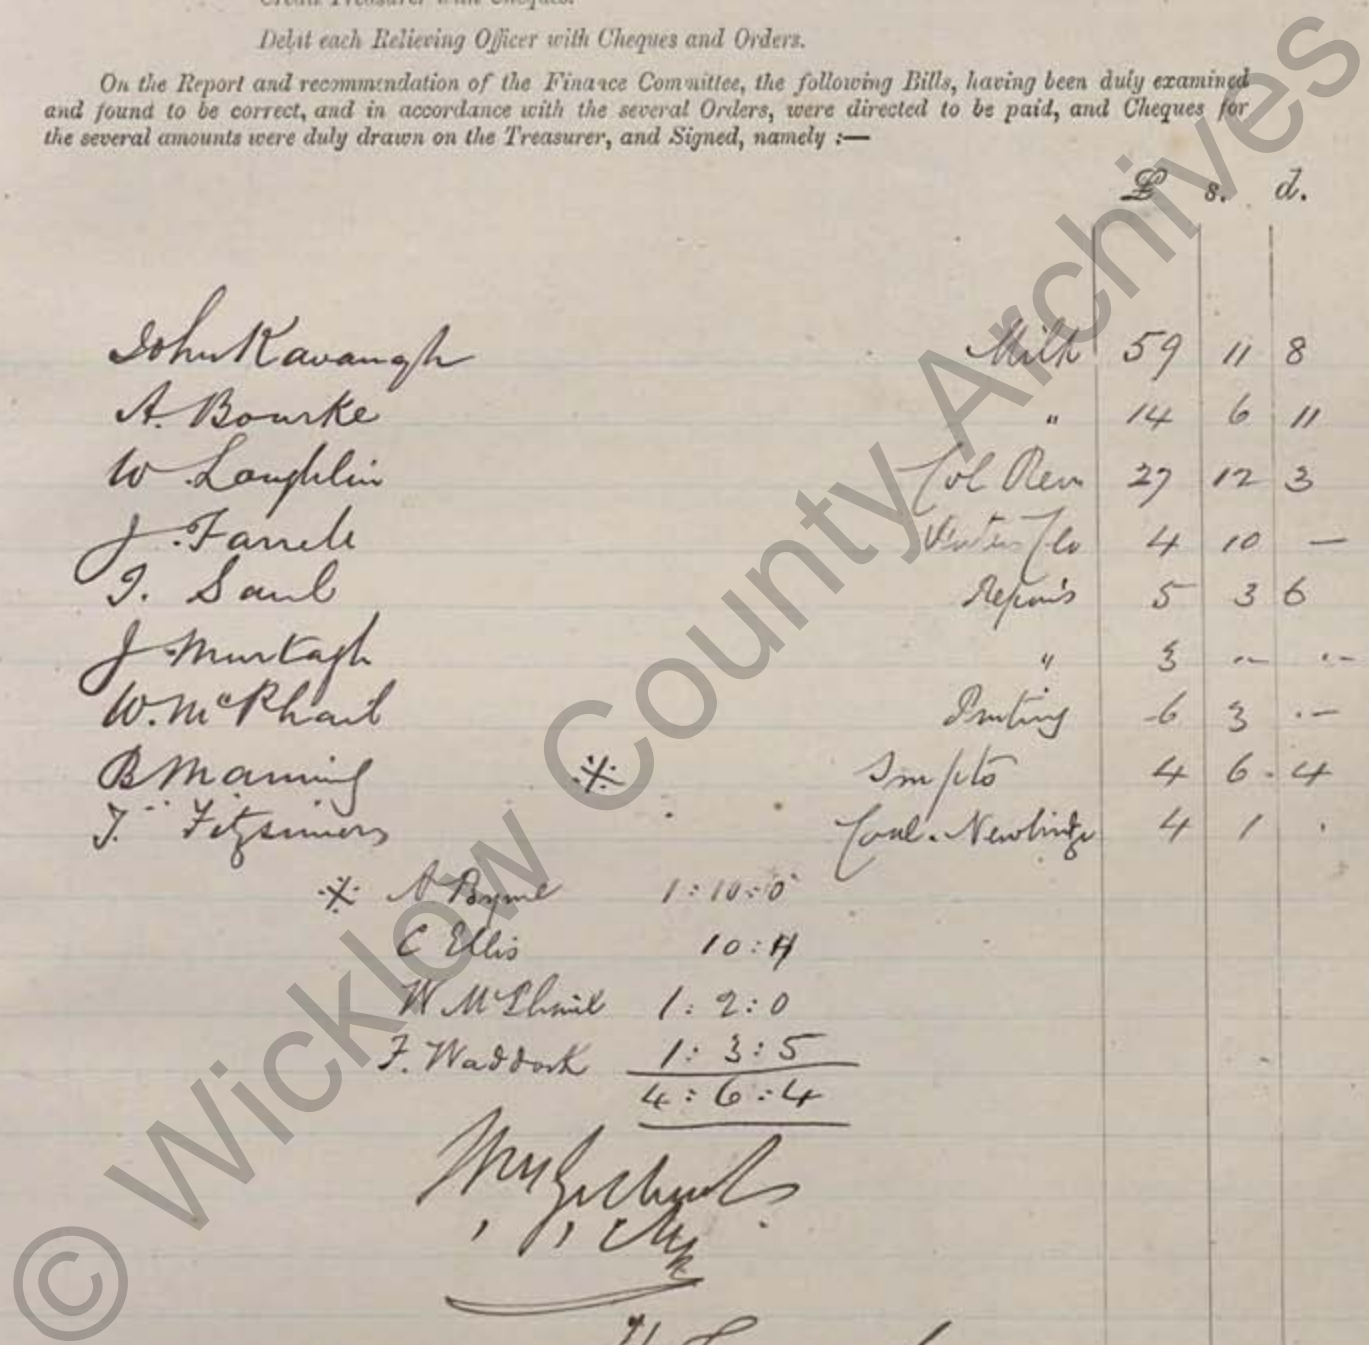 Credit Treasurer with Cheques.
Debit each Relieving Officer with Cheques and Orders.
On the Report and recommendation of the Finance Committee, the following Bills, having been duly examined
and found to be correct, and in accordance with the several Orders, were directed to be paid, and Cheques for
the several amounts were duly drawn on the Treasurer, and Signed, namely :—
£ s. d.
John Kavanagh Milk 59 11 8
A. Bourke " 14 6 11
W Loughlin Col Rem 27 12 3
J. Farrell 4 10 —
J. Saul Repairs 5 3 6
J Murtagh " 3 .— .—
W. McPhail Printing 6 3 .—
B Manning ※ 4 6 . 4
J. Fitzsimons Coal. Newbridge 4 1 .
※ A Byrne 1 : 10 : 0
C Ellis 10 : 11
W McPhail 1 : 2 : 0
F. Waddock 1 : 3 : 5
4 : 6 : 4
© Wicklow County Archives